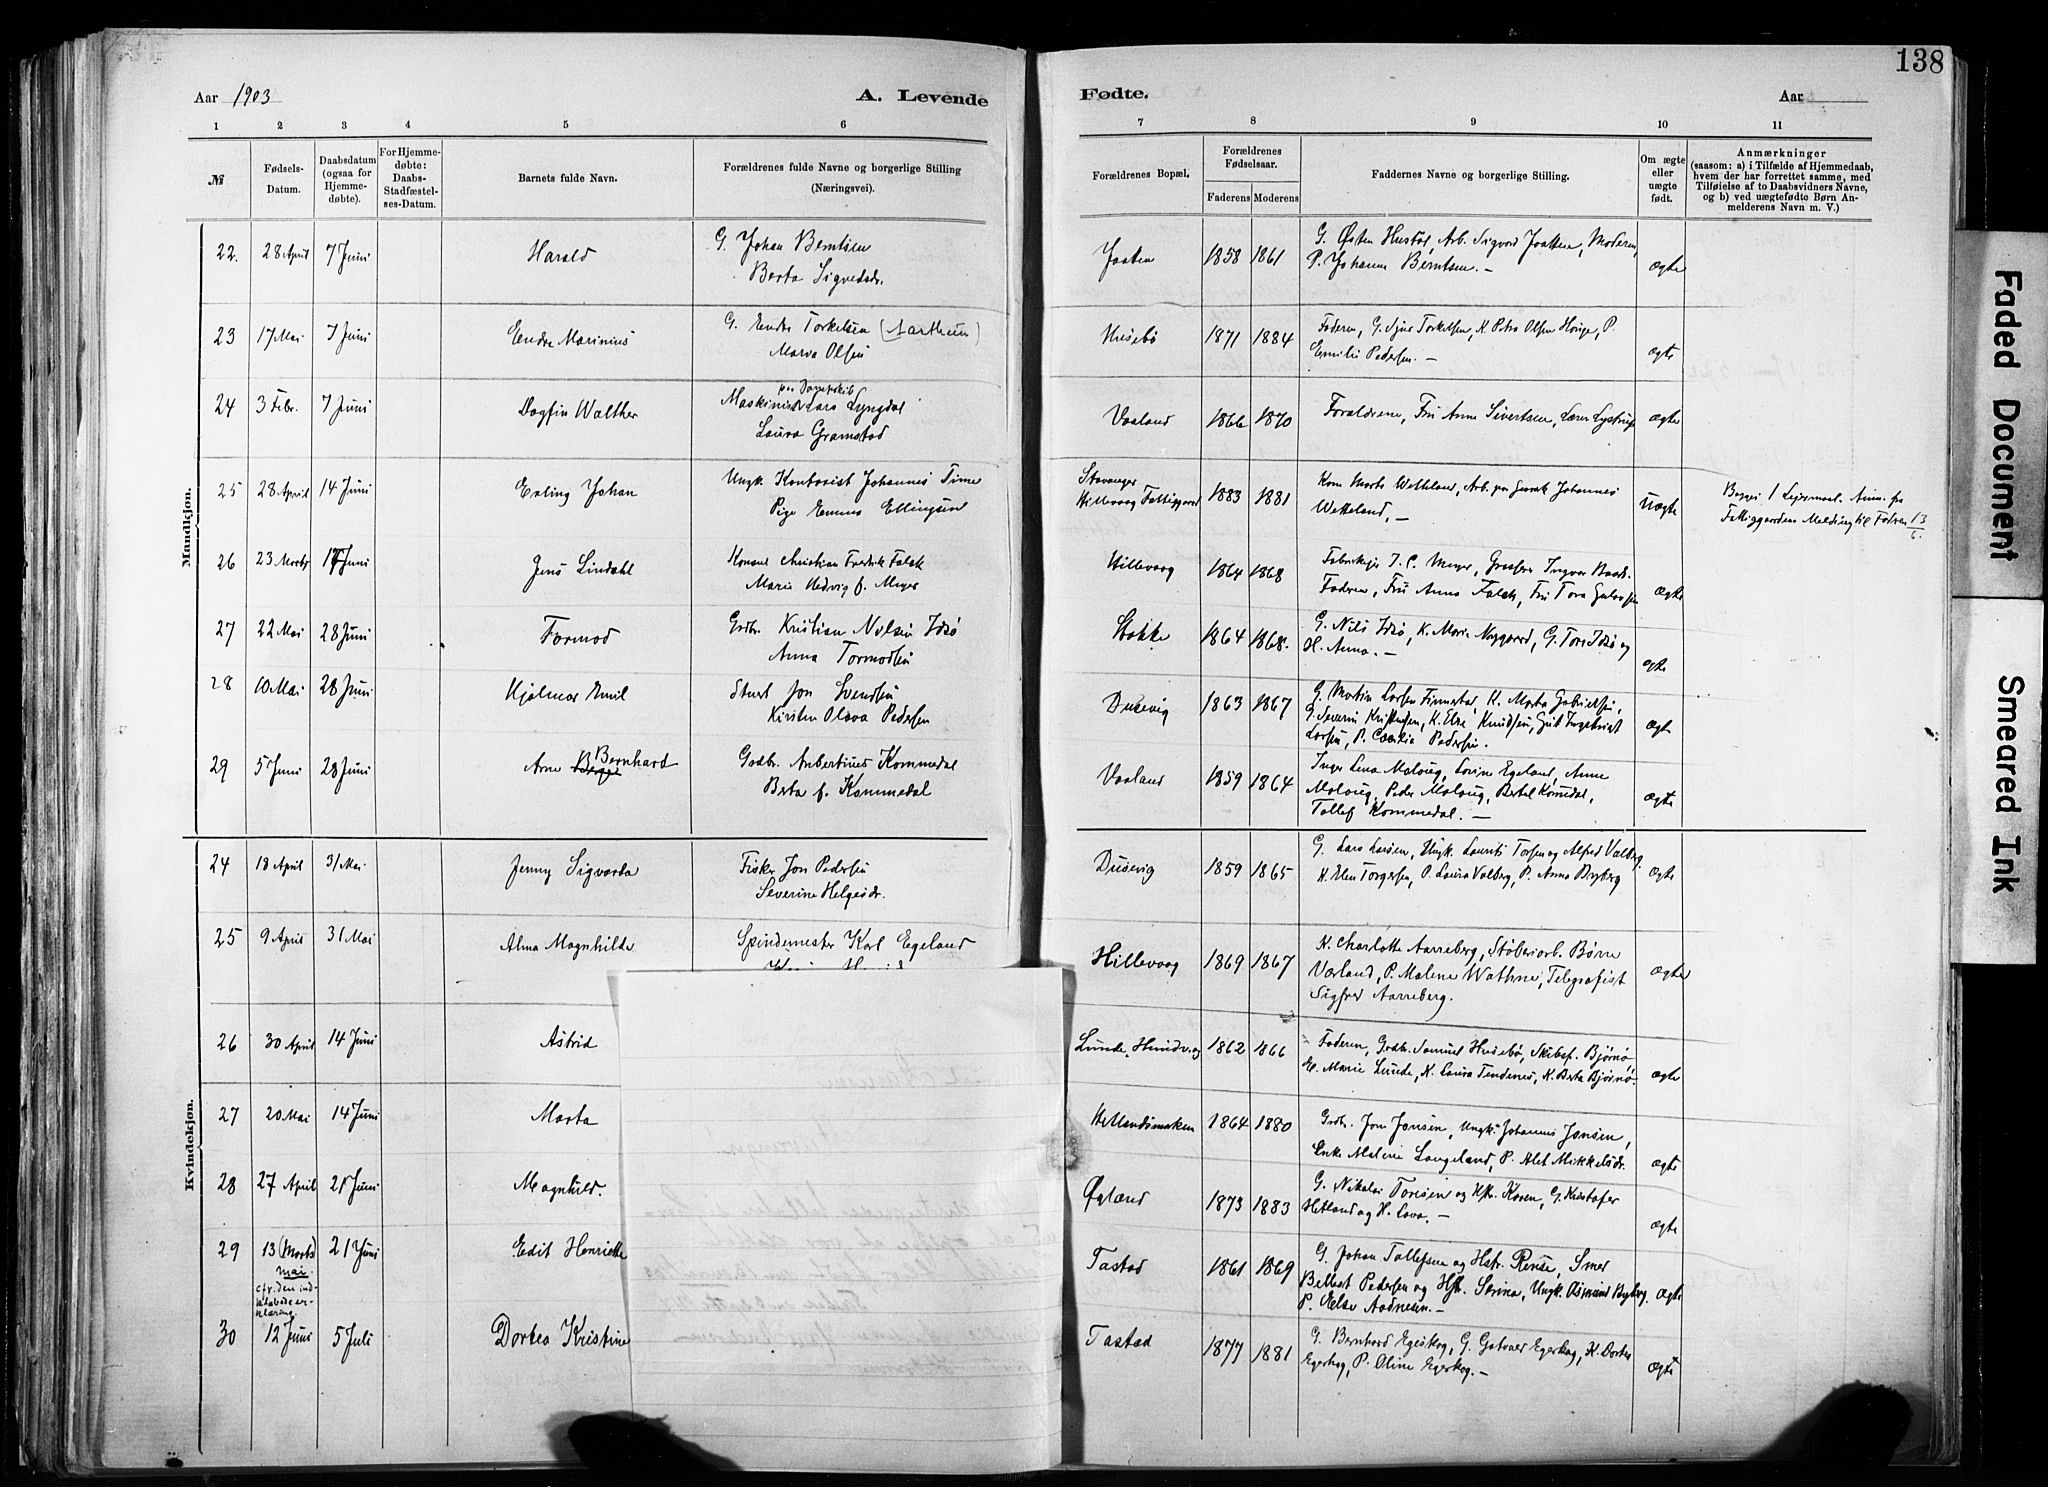 138
Aar 1903
A. Levende
Fødte.
Aar
1 2 3 4 5 6 7 8 9 10 11
№
Fødsels-
Datum.
Daabsdatum
(ogsaa for
Hjemme-
døbte).
For Hjemme-
døbte:
Daabs-
Stadfæstel-
ses-Datum.
Barnets fulde Navn.
Forældrenes fulde Navne og borgerlige Stilling
(Næringsvei).
Forældrenes Bopæl.
Forældrenes
Fødselsaar.
Faderens Moderens
Faddernes Navne og borgerlige Stilling.
Om ægte
eller
uægte
født.
Anmærkninger
(saasom: a) i Tilfælde af Hjemmedaab,
hvem der har forrettet samme, med
Tilføielse af to Daabsvidners Navne,
og b) ved uægtefødte Børn An-
melderens Navn m. V.)
Mandkjøn.
22. 28 April 7 Juni Harald
G. Johan Berntsen
Berta Sigvedsdr.
Jaaten 1858 1861
G. Østen Hustøl, Arb. Sigvard Jaatten, Moderen,
P. Johanne Berntsen. —
ægte
23 17 Mai 7 Juni Endre Marinius
G. Endre Torkelsen (Aartheim)
Marva Olsen
Husebø 1871 1884
Faderen, G. Sjur Torkelsen, K. Petra Olsen Hauge, P.
Emilie Pedersen. —
ægte
24 3 Febr. 7 Juni Dagfin Walther
paa Dampskib
Maskinist Lars Lyngdal
Laura Gramstad
Vaaland 1866 1870
Forældrene, Fru Anne Sivertsen, Lærer Lystrup
ægte
25 28 April 14 Juni Erling Johan
Ungk. Kontorist Johannes Time
Pige Emma Ellingsen
Stavanger
Hillevaag Fattiggaard 1883 1881
Kone Marta Wetteland, Arb. paa Gaarsk Johannes
Wetteland, —
Uægte
Begges 1 Leiermaal. Anm. fra
Fattiggaarden Melding til Fadren 13/6
26 23 Marts 14 Juni Jens Lindahl
Konsul Christian Fredrik Falck
Marie Hedvig f. Meyer
Hillevaag 1864 1868
Fabrikeier J. C. Meyer, Grosserer Ingvar
Faderen, Fru Anna Falck, Fru Tora
ægte
27 22 Mai 28 Juni Tormod
Grdbr. Kristian Nilsen Idsø
Anna Tormodsen
Stokke 1864 1868.
G. Nils Idsø, K. Marie Nygaard, G. Tore Idsø og
H. Anna. —
ægte
28 10 Mai 28 Juni Hjalmar Emil
Stuert Jon Svendsen
Kirsten Olava Pedersen
Dusevig 1863 1867
G. Martin Larsen Finnestad, K. Marta Gabrielsen,
G. Severin Kristensen, K. Else Knudsen, Gut Ingebrigt
Larsen, P. Cecilie Pedersen.
ægte
29 5 Juni 28 Juni Arne Berge Bernhard
Grdbr. Anbertinus Kommedal
Berta f. Kommedal
Vaaland 1859 1864
Inger Lena Maloug, Lovine Egeland, Anne
Maloug, Peder Maloug, Bertel Komedal,
Tollef Kommedal. —
ægte
Kvindekjøn.
24 18 April 31 Mai Jenny Sigvarta
Fisker Jon Pedersen
Severine Helgesdr.
Dusevig 1859 1865
G. Lars Larsen, Ungk. Laurits Torsen og Alfred Valberg.
K. Elen Torgersen, P. Laura Valberg, P. Anna Bryberg
ægte
25 9 April 31 Mai Alma Magnhilde
Spindemester Karl Egeland
Hillevaag 1869 1867
K. Charlotte Aarreberg, Støberiarb. Børne
Værland, P. Malene Wathne, Telegrafist
Sigfred Aarreberg.
ægte
26 30 April 14 Juni Astrid
Lunde, Hundvaag 1862 1866
Faderen, Grdbr. Samuel Husebø, Skibsf. Bjørnø,
E. Marie Lunde, K. Laura Tendenes, K. Berta Bjørnø
ægte
27 20 Mai 14 Juni Marta
Hetlandsmarken 1864 1880
Grdbr. Jon Jonsen, Ungk. Johannes Jonsen,
Enke Malene Langeland, P. Alet Mikkelsdr.
ægte
28 27 April 21 Juni Magnhild.
Øgland 1873 1883
G. Nikolai Toresen og Hstr. Karen, G. Kristofer
Hetland og H. Lava. —
ægte
29 13 (Marts) 21 Juni Edit Henriette
mai.
cfr. den ind-
klæbede er-
klæring.
Tastad 1861 1869
G. Johan Tollefsen og Hstr. Rense, Smed
Pedersen og Hstr. Serina, Ungk. Osmund Byberg,
P. Else Aadnesen. —
ægte
30 12 Juni 5 Juli Dortea Kristine
Tastad 1877 1881
G. Bernhard Egeskog, G. Gabriel Egeskog, K. Dortea
Egeskog, P. Oline Egeskog. —
ægte
Faded Document
Smeared Ink